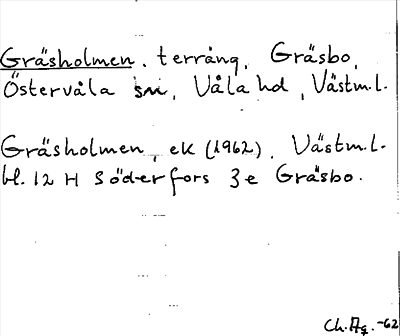 Gräsholmen. terräng, Gräsbo,
Östervåla sn, Våla hd, Västm.l.
Gräsholmen, ek (1962). Västm.l-
bl. 12 H Söderfors 3e Gräsbo.
Ch. Åg. -62